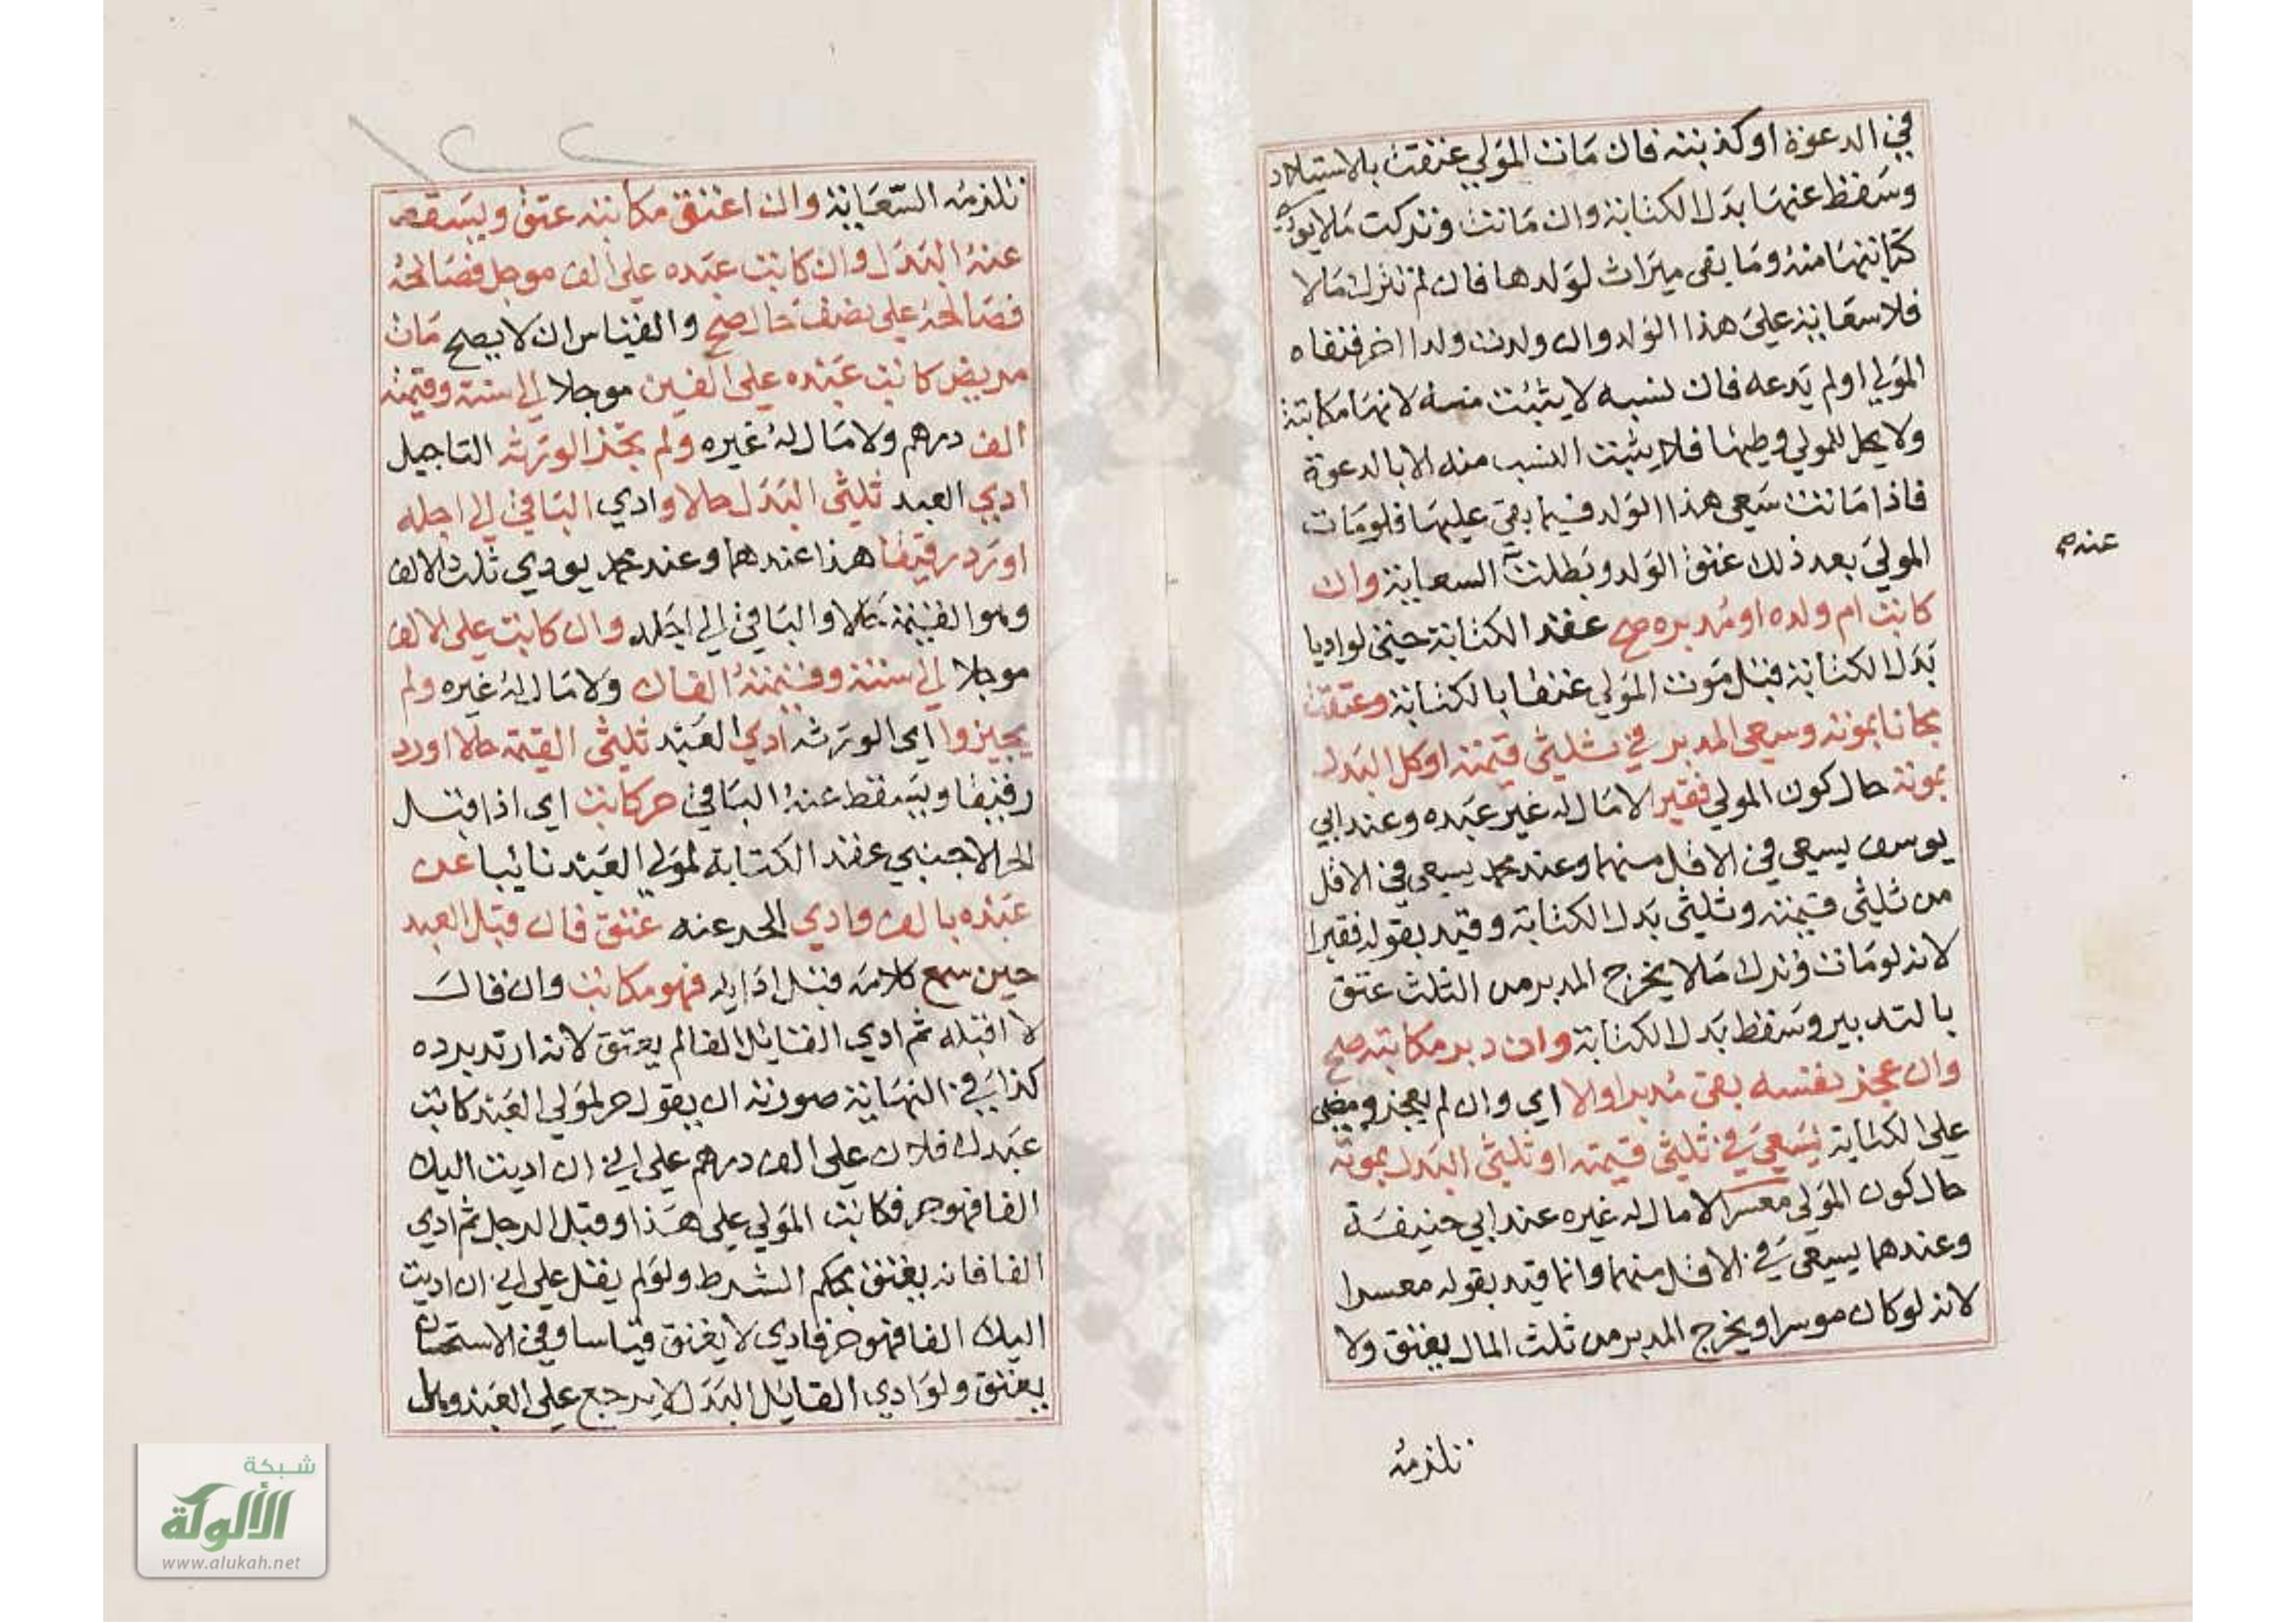 في الدعوة او كذبته فان مات المولي عتقت بالاستيلاد
وسقط عنها بدل الكتابة وان ماتت وتركت مالا يودي
كتابتها منه وما بقي ميراث لولدها فان لم تترك مالا
فلا سعاية علي هذا الولد وان ولدت ولدا اخر فنفاه
المولي او لم يدعه فان نسبه لا يثبت منه لانها مكاتبة
ولا يحل للمولي وطيها فلا يثبت النسب منه الا بالدعوة
فاذا ماتت سعي هذا الولد فيما بقي عليها فلو مات
المولي بعد ذلك عتق الولد وبطلت السعاية وان
عنه
كاتب ام ولده او مدبره صح عقد الكتابة حتي لو اديا
بدل الكتابة قبل موت المولي عتقا بالكتابة وعتقت
مجانا بموته وسعي المدبر في ثلثي قيمته او كل البدل
بموته حال كون المولي فقيرا لا مال له غير عبده وعند ابي
يوسف يسعي في الاقل منهما وعند محمد يسعي في الاقل
من ثلثي قيمته وثلثي بدل الكتابة وقيد بقوله فقيرا
لانه لو مات وترك مالا يخرج المدبر من الثلث عتق
بالتدبير وسقط بدل الكتابة وان دبر مكاتبه صح
وان عجز نفسه بقي مدبرا والا اي وان لم يعجز ومضي
علي الكتابة يسعي في ثلثي قيمته او ثلثي البدل بموته
حال كون المولي معسرا لا مال له غيره عند ابي حنيفة
وعندهما يسعي في الاقل منهما وانما قيد بقوله معسرا
لانه لو كان موسرا ويخرج المدبر من ثلث المال يعتق ولا
تلزمه
تلزمه السعاية وان اعتق مكاتبه عتق ويسقط
عنه البدل وان كاتب عبده علي الف موجل فصالحه
فصالحه علي نصف حال صح والقياس ان لا يصح مات
مريض كاتب عبده علي الفين موجلا الي سنة وقيمته
الف درهم ولا مال له غيره ولم يجز الورثه التاجيل
ادي العبد ثلثي البدل حالا وادي الباقي الي اجله
او رد رقيقا هذا عندهما وعند محمد يودي ثلث الالف
وهو القيمة حالا والباقي الي اجله وان كاتب علي الالف
موجلا الي سنة وقيمته الفان ولا مال له غيره ولم
يجيزوا اي الورثه ادي العبد ثلثي القيمة حالا او رد
رقيقا ويسقط عنه الباقي حر كاتب اي اذا قبل
الحر الاجنبي عقد الكتابة لمولي العبد نائبا عن
عبده بالف وادي الحر عنه عتق فان قبل العبد
حين سمع كلامه قبل ادايه فهو مكاتب وان قال
لا اقبله ثم ادي القائل الفا لم يعتق لانه ارتد برده
كذا في النهاية صورته ان يقول حر لمولي العبد كاتب
عبدك فلان علي الف درهم علي اني ان اديت اليك
الفا فهو حر فكاتب المولي علي هذا وقبل الرجل ثم ادي
الفا فانه يعتق بحكم الشرط ولو لم يقل علي اني ان اديت
اليك الفا فهو حر فادي لا يعتق قياسا وفي الاستحسان
يعتق ولو ادي القائل البدل لا يرجع علي العبد وهل
شبكة
الألوكة
www.alukah.net